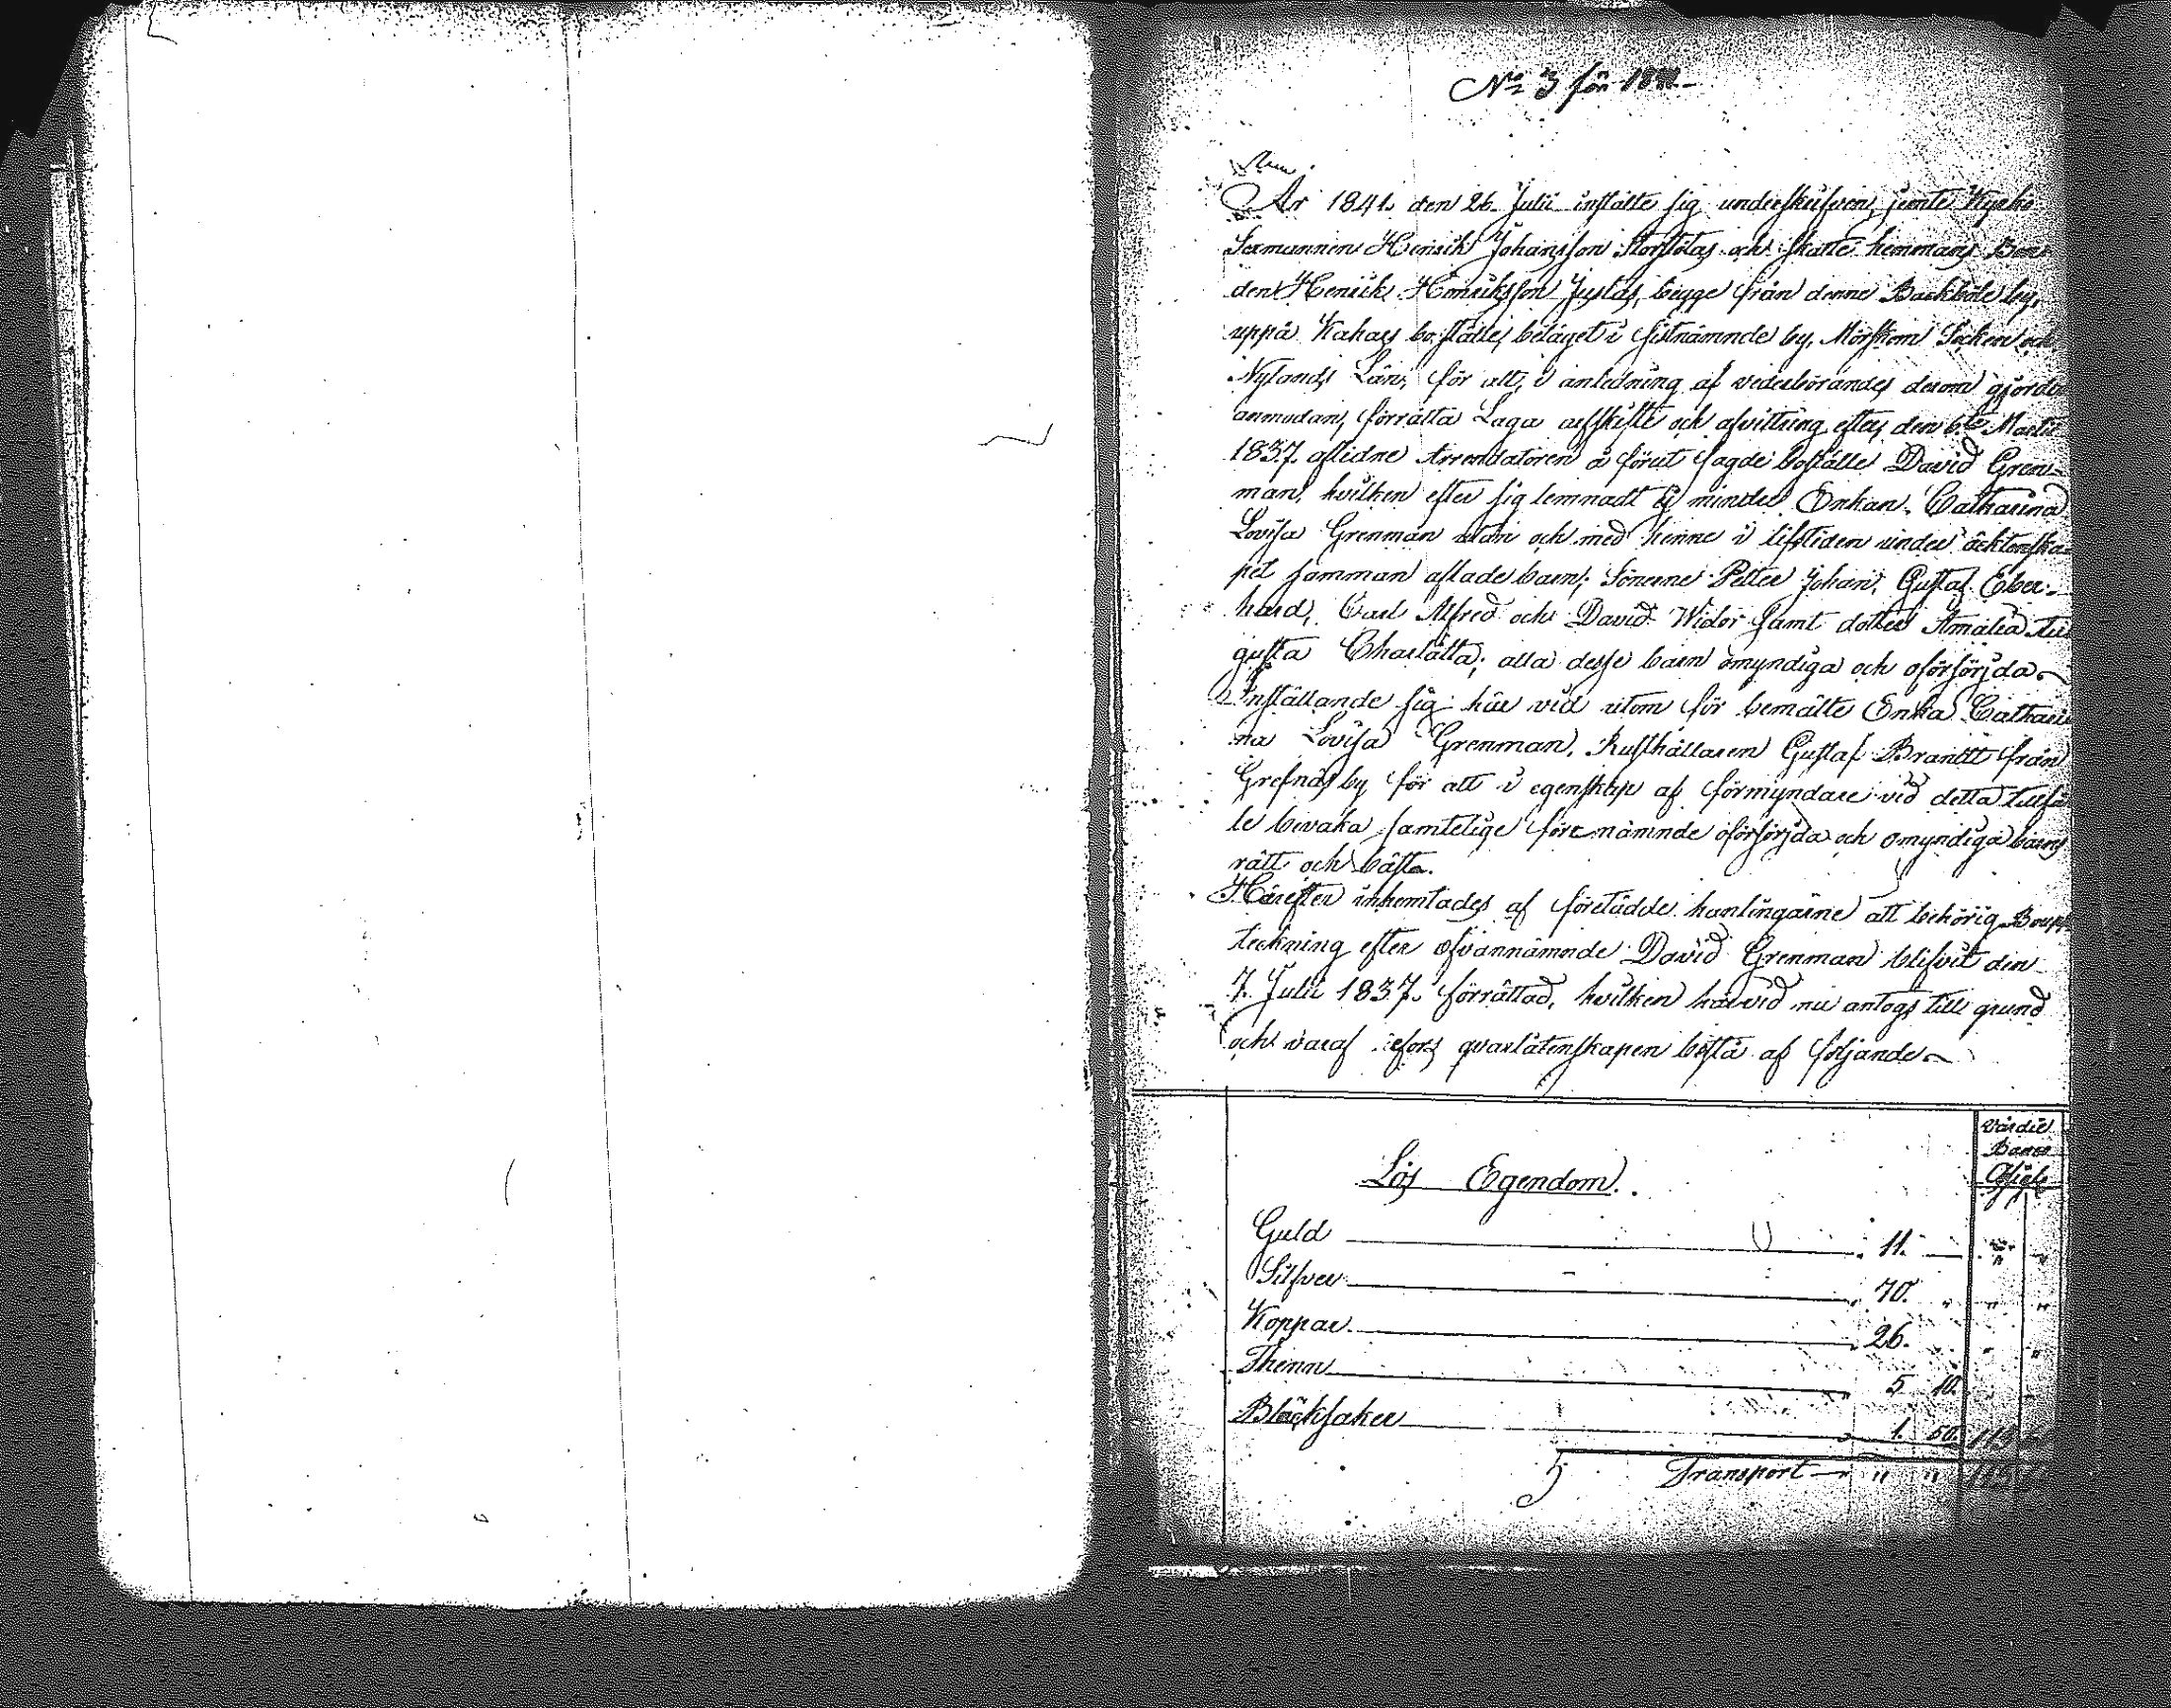 No 3 för 18
År 1841. den 26 Julii instälte sig underskrifven, jemte Kyrko
Sexmannen Henrik Johansson Storstötas och skatte hemmans Bon
den Henrik Henriksson Juslas, begge från denne Backböle by,
uppå Kahars boställe, beläget i sistnämnde by, Mörskom Socken och
Nylands Län; för att, i anledning af vederbörandes derom gjorda
anmodan, förrätta Laga arfskifte och afvittring efter den 6te Martii
1837. aflidne Arrendatoren å förut sagde boställe David Gren-
man, hvilken efter sig lemnadt ej mindre Enkan Catharina
Lovisa Grenman utan och med henne i lifstiden under äcktenska
pet samman aflade barn; Sönerne Petter Johan, Gustaf Eber-
hard, Carl Alfred och David Widor samt dotter Amalia Au
gusta Charlåtta; alla desse barn omyndiga och oförsörjda
Inställande sig här vid utom för bemälte Enka Cathari
na Lovisa Grenman, Rusthållaren Gustaf Brandt från
Grefnäs by för att i egenskap af förmyndare vid detta tillfä
le bevaka samtelige förenämnde oförsörjda och omyndiga barns
rätt och bästa.
Härefter inhemtades af företädde hanlingarne att behörig Boupp
teckning efter ofvannämnde David Grenman blifvit den
7. Julii 1837. förrättad, hvilken härvid nu antogs till grund
och varaf qvarlåtenskapen bestå af följande
Värdie
Banco
Lös Egendom.
Guld 11. " "
Silfver 70. " " "
Koppar 26. " "
Thenn 5 10.
Bläcksaker 1. 50.
Transport " "